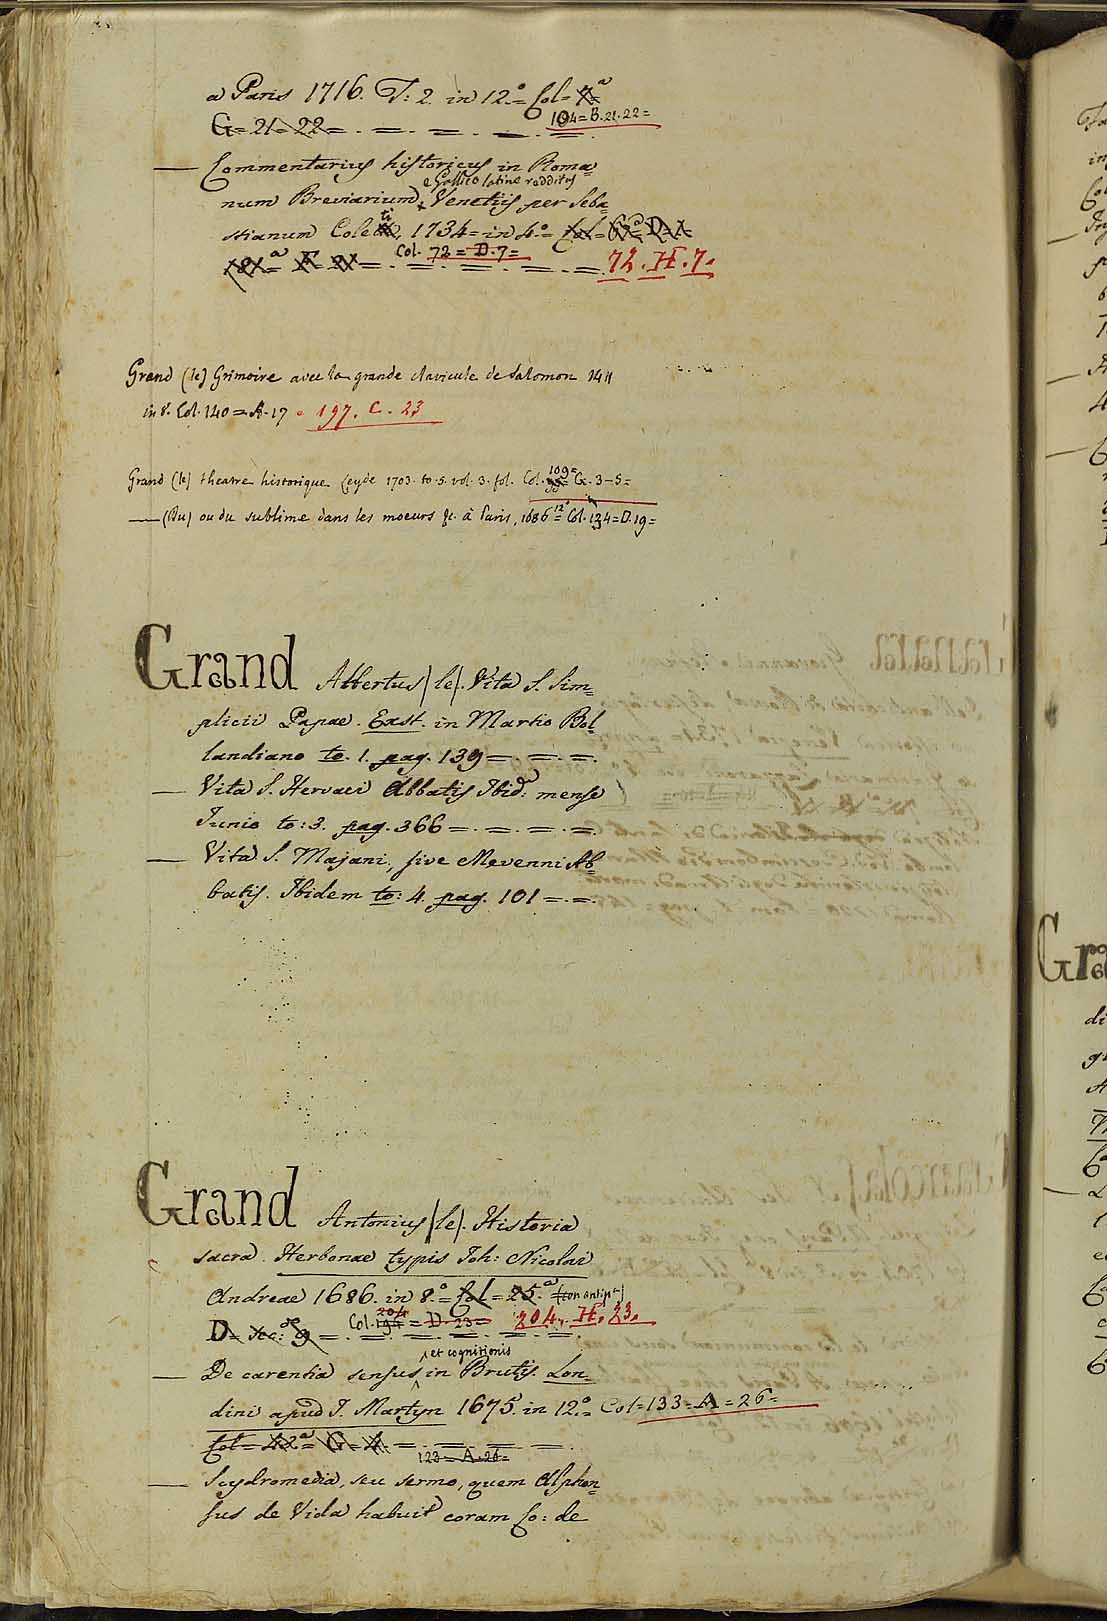 a Paris 1716. T: 2. in 12.° = Col = a
104 = B. 21. 22 =
G = 21 = 22 =
— Commentarius historicus in Roma=
e Gallico latine redditus
num Breviarium, Venetiis per Seba=
stianum Coleti, 1734 = in 4.° = Col = 62ª = D = 1
Col. 72 = D. 7 = 72. H. 7.
Grand (le) Grimoire avec la grande clavicule de Salomon 1411
in 8. Col. 140 = A. 17 = 197. C. 23
Grand (le) theatre historique Leyde 1703. to. 5. vol. 3. fol. Col. 109 = G. 3-5 =
— (Du) ou du sublime dans les moeurs &c. à Paris, 1686 = 12° Col. 134 = D. 19 =
Grand Albertus (le). Vita S. Sim=
plicii Papae. Exst. in Martio Bol
landiano to. 1. pag. 139 =
— Vita S. Hervaei Abbatis Ibid: mense
Junio to: 3. pag. 366 =
— Vita S. Majani, sive Mevenni Ab=
batis. Ibidem to: 4. pag. 101 =
Grand Antonius (le). Historia
sacra. Herbonae typis Joh: Nicolai
Andreae 1686. in 8.° = Col = 25.ª
204
Col. 194 = D. 23 = 204. H. 23.
D = Sec: de 9 =
et cognitionis
— De carentia sensus in Brutis. Lon=
dini apud J. Martyn 1675. in 12.° = Col = 133 = A = 26 =
Col = 42ª = G = 4 =
123 = A. 26 =
— Scydromedia, seu sermo, quem Alphon=
sus de Vida habuit coram Co: de